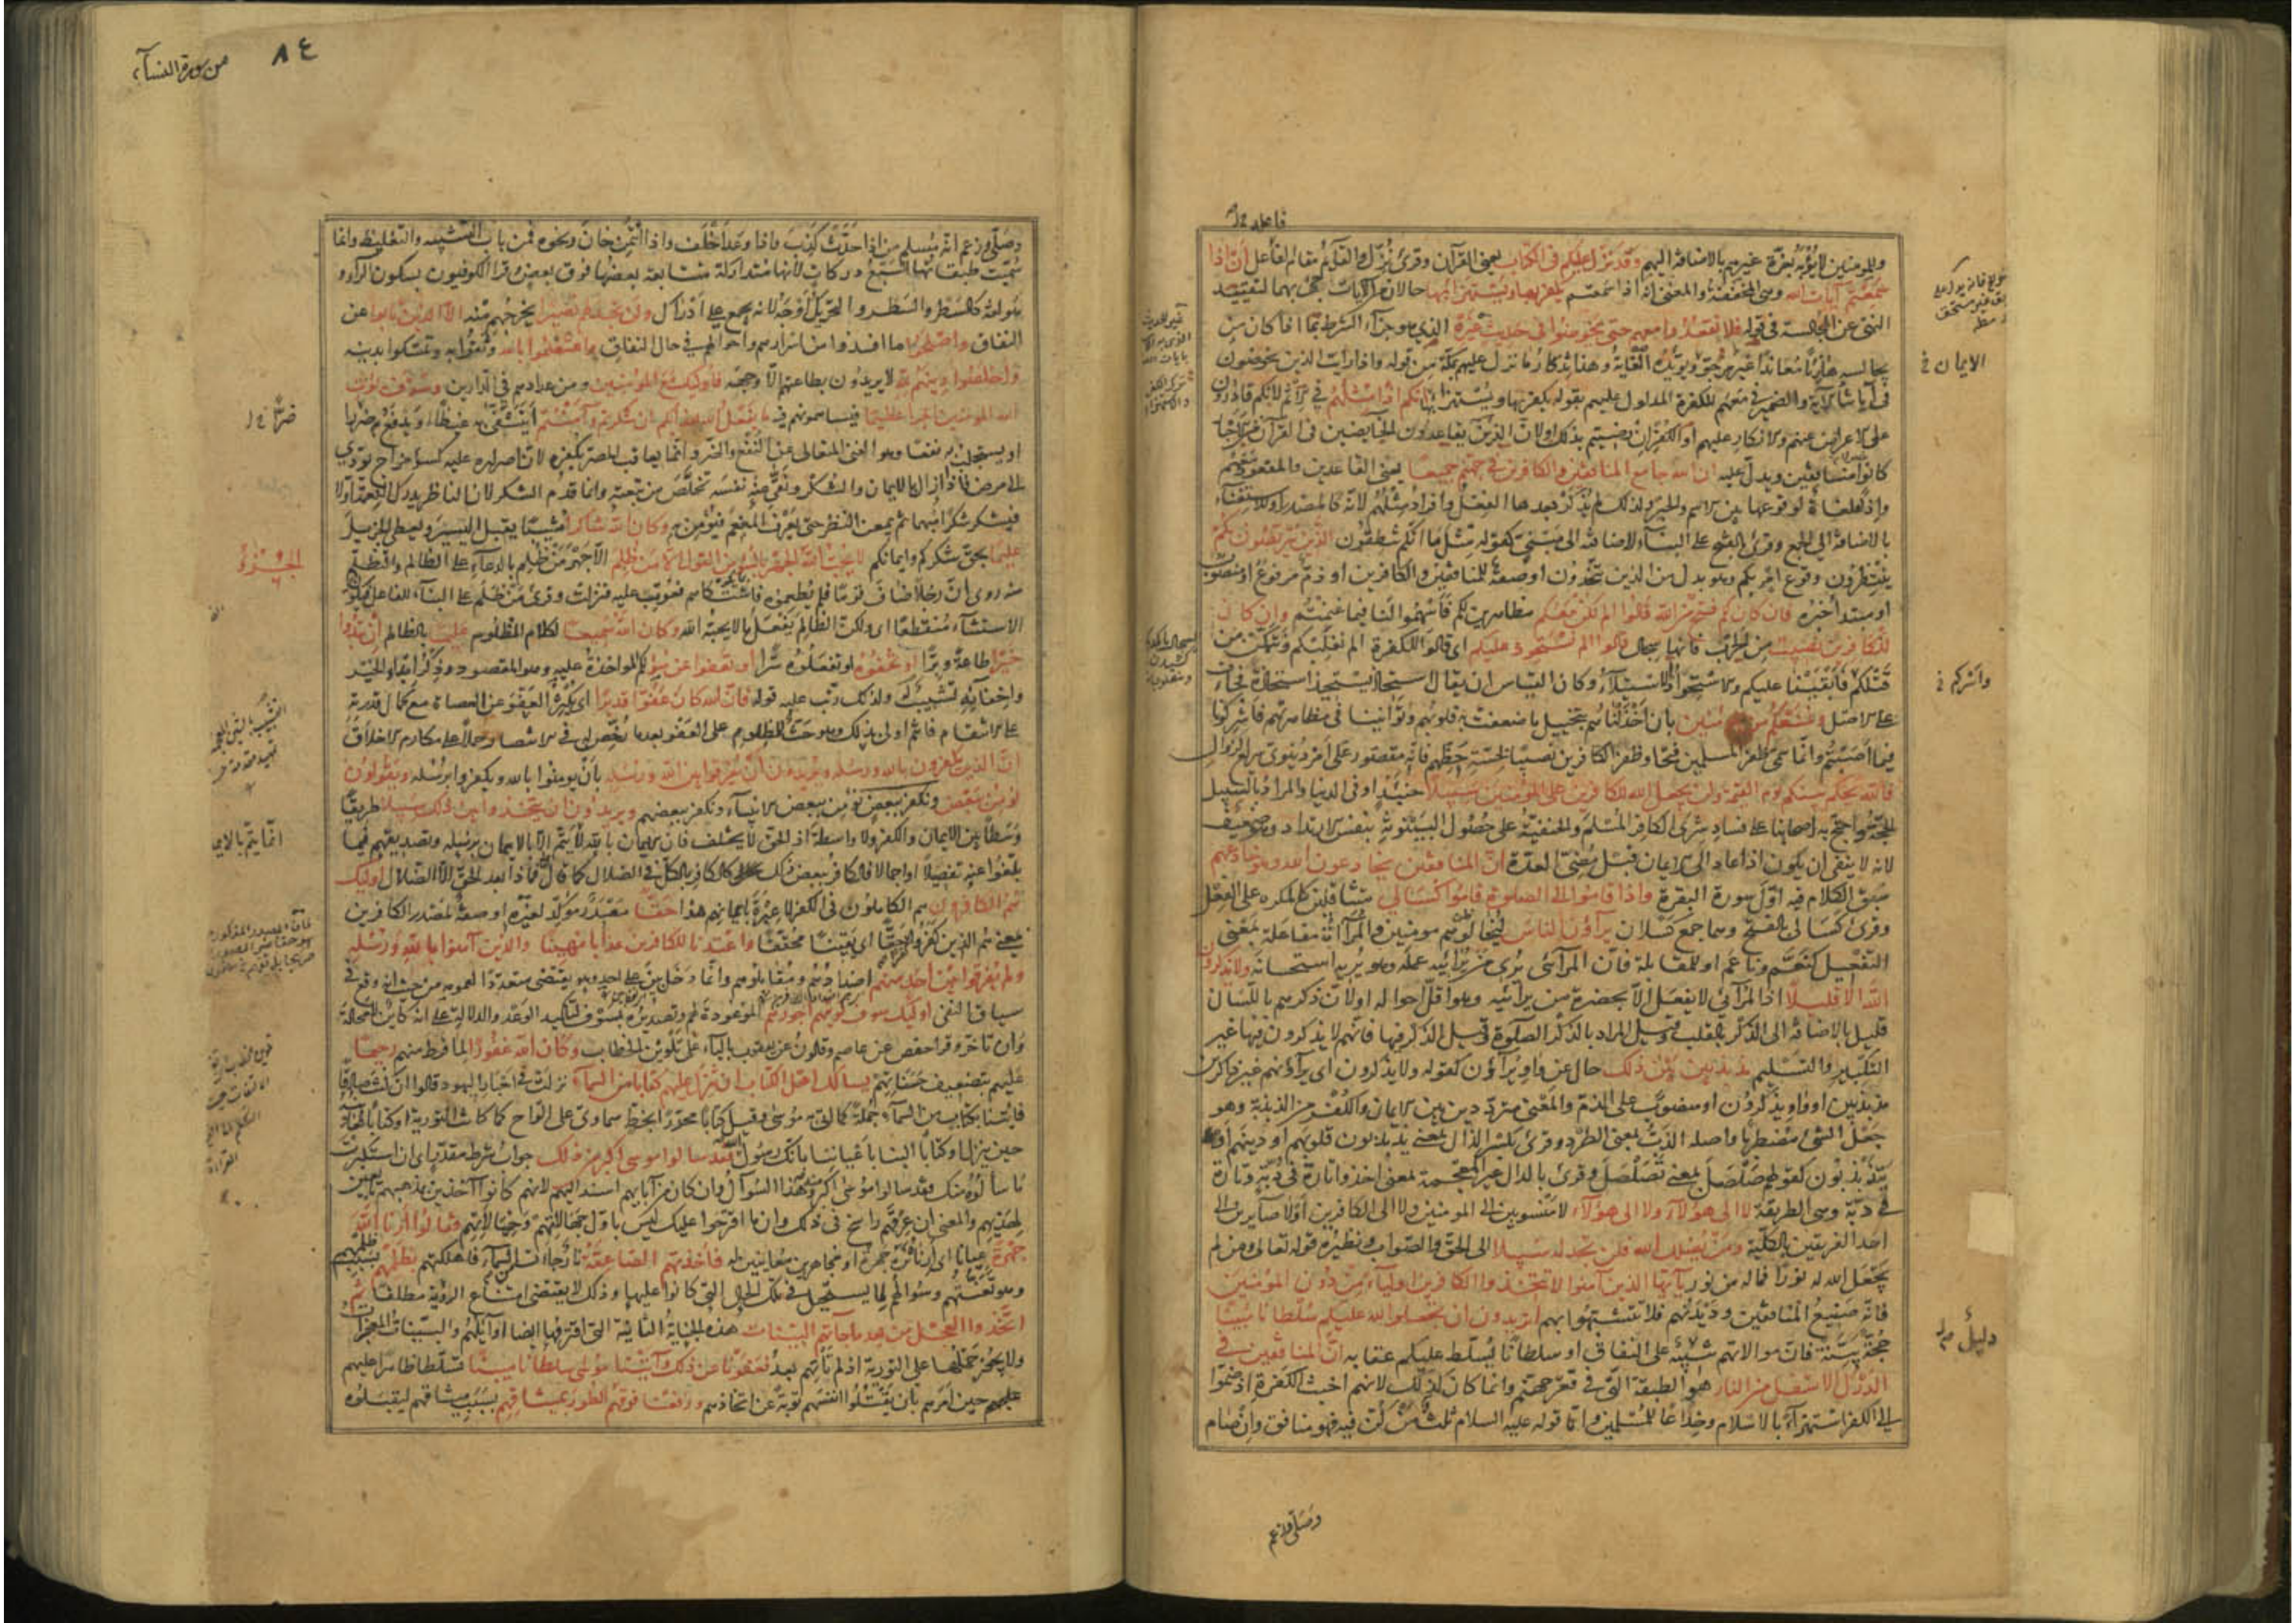 وللمؤمنين لا يؤبه بعزة غيرهم بالاضافة اليهم وقد نزل عليكم فى الكتاب يعنى القرآن وقرئ نزل والقائم مقام الفاعل أن اذا
سمعتم آيات الله وهى المخففة والمعنى انه اذا سمعتم يكفر بها ويستهزأ بها حالان من الآيات جئ بهما لتقييد
النهى عن المجالسة فى قوله فلا تقعدوا معهم حتى يخوضوا فى حديث غيره الذى هو جزاء الشرط بما اذا كان من
يجالسه هازئا معاندا غير مرجو ويؤيده الغاية وهذا تذكار ما نزل عليهم بمكة من قوله واذا رايت الذين يخوضون
فى آياتنا الآية والضمير فى معهم للكفرة المدلول عليهم بقوله يكفر بها ويستهزأ بها انكم اذا مثلهم فى الاثم لانكم قادرون
على الاعراض عنهم والانكار عليهم أو الكفر ان رضيتم بذلك او لان الذين يقاعدون الخايضين فى القرآن من الاحبار
كانوا منافقين ويدل عليه ان الله جامع المنافقين والكافرين فى جهنم جميعا يعنى القاعدين والمقعود معهم
واذا ملغاة لوقوعها بين الاسم والخبر ولذلك لم يذكر بعدها الفعل وافراد مثلهم لانه كالمصدر او للاستغناء
بالاضافة الى الجمع وقرئ بالفتح على البناء لاضافته الى مبنى كقوله مثل ما انكم تنطقون الذين يتربصون بكم
ينتظرون وقوع امر بكم وهو بدل من الذين يتخذون او صفة للمنافقين والكافرين او ذم مرفوع او منصوب
او مبتدأ خبره فان كان لكم فتح من الله قالوا الم نكن معكم مظاهرين لكم فأسهموا لنا فيما غنمتم وان كان
للكافرين نصيب من الحرب فانها سجال قالوا الم نستحوذ عليكم اى قالوا للكفرة الم نغلبكم ونتمكن من
قتلكم فأبقينا عليكم والاستحواذ الاستيلاء وكان القياس ان يقال استحاذ يستحيذ استحاذة فجاءت
على الاصل ونمنعكم من المؤمنين بان خذلناهم بتخييل ما ضعفت به قلوبهم وتوانينا فى مظاهرتهم فاشركونا
فيما اصبتم وانما سمى ظفر المسلمين فتحا وظفر الكافرين نصيبا لخسة حظهم فانه مقصور على أمر دنيوى سريع الزوال
فالله يحكم بينكم يوم القيمة ولن يجعل الله للكافرين على المؤمنين سبيلا حينئذ او فى الدنيا والمراد بالسبيل
الحجة واحتج به اصحابنا على فساد شرى الكافر المسلم والحنفية على حصول البينونة بنفس الارتداد وهو ضعيف
لانه لا ينفى ان يكون اذا عاد الى الايمان قبل مضى العدة ان المنافقين يخادعون الله وهو خادعهم
سبق الكلام فيه اول سورة البقرة واذا قاموا الى الصلوة قاموا كسالى متثاقلين كالمكره على الفعل
وقرئ كسالى بالفتح وهما جمع كسلان يرآؤن الناس ليخالوهم مومنين والمرآاة مفاعلة بمعنى
التفعيل كنعم وناعم او للمقابلة فان المرآئى يرى من يرائيه عمله وهو يريه استحسانه ولا يذكرون
الله الا قليلا اذ المرائى لا يفعل الا بحضرة من يرآئيه وهو اقل احواله او لان ذكرهم باللسان
قليل بالاضافة الى الذكر بالقلب وقيل المراد بالذكر الصلوة وقيل الذكر فيها فانهم لا يذكرون فيها غير
التكبير والتسليم مذبذبين بين ذلك حال عن واو يرآؤن كقوله ولا يذكرون اى يرآؤنهم غير ذاكرين
مذبذبين او واو يذكرون او منصوب على الذم والمعنى مترددين بين الايمان والكفر من الذبذبة وهو
جعل الشئ مضطربا واصله الذب بمعنى الطرد وقرئ بكسر الذال بمعنى يذبذبون قلوبهم أو دينهم أو
يتذبذبون كقولهم صلصل بمعنى تصلصل وقرئ بالدال غير المعجمة بمعنى اخذوا تارة فى دبة وتارة
فى دبة وهى الطريقة لا الى هؤلآء ولا الى هؤلآء لا منسوبين الى المومنين ولا الى الكافرين أو لا صآيرين الى
احد الفريقين بالكلية ومن يضلل الله فلن تجد له سبيلا الى الحق والصواب ونظيره قوله تعالى ومن لم
يجعل الله له نورا فما له من نور يآيها الذين آمنوا لا تتخذوا الكافرين اوليآء من دون المومنين
فانه صنيع المنافقين وديدنهم فلا تتشبهوا بهم اتريدون ان تجعلوا لله عليكم سلطانا مبينا
حجة بينة فان موالاتهم على النفاق او سلطانا يسلط عليكم عقابه ان المنافقين فى
الدرك الاسفل من النار هو الطبقة التى فى قعر جهنم وانما كان لذلك لانهم اخبث الكفرة اذ ضموا
الى الكفر استهزاء بالاسلام وخداعا للمسلمين واما قوله عليه السلام ثلث من كن فيه فهو منافق وان صام
الايمان
واشركم
دليل
وصلى وزعم
من سورة النسآء
٨٤
وصلى وزعم انه مسلم من اذا حدث كذب واذا وعد أخلف واذا ائتمن خان ونحوه فمن باب التشبيه والتغليظ وانما
سميت طبقاتها السبع دركات لانها متداركة متتابعة بعضها فوق بعض وقرا الكوفيون بسكون الراء وهو
لغة كالسطر والسطر والتحريك أوجه لانه يجمع على أدراك ولن تجد لهم نصيرا يخرجهم منه الا الذين تابوا عن
النفاق واصلحوا ما افسدوا من اسرارهم واحوالهم فى حال النفاق واعتصموا بالله وثقوا به وتمسكوا بدينه
واخلصوا دينهم لله لا يريدون بطاعتهم الا وجهه فأوليك مع المؤمنين ومن عدادهم فى الدارين وسوف يؤت
الله المومنين اجرا عظيما فيساهمونهم فيه ما يفعل الله بعذابكم ان شكرتم وآمنتم أيتشفى به غيظا او يدفع به ضرا
او يستجلب به نفعا وهو الغنى المتعالى عن النفع والضر وانما يعاقب المصر بكفره لان اصراره عليه كسوء مزاج يودى
الى مرض فاذا ازاله بالايمان والشكر ونقى عنه نفسه تخلص من تبعته وانما قدم الشكر لان الناظر يدرك النعمة اولا
فيشكر شكرا مبهما ثم يمعن النظر حتى يعرف المنعم فيؤمن به وكان الله شاكرا مثيبا يقبل اليسير ويعطى الجزيل
عليما بحق شكركم وايمانكم لا يحب الله الجهر بالسوء من القول الا من ظلم الا جهر من ظلم بالدعاء على الظالم والتظلم
منه روى ان رجلا ضاف قوما فلم يطعموه فاشتكاهم فعوتب عليه فنزلت وقرئ من ظلم على البناء للفاعل فيكون
الاستثناء منقطعا اى ولكن الظالم يفعل ما لا يحبه الله وكان الله سميعا لكلام المظلوم عليما بالظالم ان تبدوا
خيرا طاعة وبرا أو تخفوه او تفعلوه سرا او تعفوا عن سوء لكم المواخذة عليه وهو المقصود وذكر ابداء الخير
واخفايه تشبيب له ولذلك رتب عليه قوله فان الله كان عفوا قديرا اى يكثر العفو عن العصاة مع كمال قدرته
على الانتقام فانتم اولى بذلك وهو حث المظلوم على العفو بعدما رخص له فى الانتصار حملا على مكارم الاخلاق
ان الذين يكفرون بالله ورسله ويريدون ان يفرقوا بين الله ورسله بان يومنوا بالله ويكفروا برسله ويقولون
نؤمن ببعض ونكفر ببعض نؤمن ببعض الانبيآء ونكفر ببعضهم ويريدون ان يتخذوا بين ذلك سبيلا طريقا
وسطا بين الايمان والكفر ولا واسطة اذ الحق لا يختلف فان الايمان بالله لا يتم الا بالايمان برسله وتصديقهم فيما
بلغوا عنه تفصيلا او اجمالا فالكافر ببعض ذلك كالكافر بالكل فى الضلال كما قال فماذا بعد الحق الا الضلال اوليك
هم الكافرون هم الكاملون فى الكفر لا عبرة بايمانهم هذا حقا مصدر مؤكد لغيره او صفة لمصدر الكافرين
بمعنى هم الذين كفروا كفرا حقا اى يقينا محققا واعتدنا للكافرين عذابا مهينا والذين آمنوا بالله ورسله
ولم يفرقوا بين أحد منهم اضدادهم ومقابلوهم وانما دخل بين على احد وهو يقتضى متعددا لعمومه من حيث انه وقع فى
سياق النفى اوليك سوف نوتيهم اجورهم الموعودة لهم وتصديره بسوف لتاكيد الوعد والدلالة على انه كاين لا محالة
وان تاخر وقرا حفص عن عاصم وقالون عن يعقوب باليآء على تلوين الخطاب وكان الله غفورا لما فرط منهم رحيما
عليهم بتضعيف حسناتهم يسالك اهل الكتاب ان تنزل عليهم كتابا من السمآء نزلت فى احبار اليهود قالوا ان كنت صادقا
فايتنا بكتاب من السمآء جملة كما اتى به موسى وقيل كتابا محررا بخط سماوى على الواح كما كانت التورية او كتابا نعاينه
حين ينزل او كتابا الينا باعياننا بانك رسول الله فقد سالوا موسى اكبر من ذلك جواب شرط مقدر اى ان استكبرت
ما سألوه منك فقد سالوا موسى اكبر منه وهذا السوآل وان كان من آبايهم اسند اليهم لانهم كانوا آخذين بمذهبهم تابعين
لهديهم والمعنى ان عرقهم راسخ فى ذلك وان ما اقترحوا عليك ليس باول جهالاتهم وخيالاتهم فقالوا أرنا الله
جهرة عيانا اى أرنا نره جهرة او مجاهرين معاينين له فاخذتهم الصاعقة نار جاءت من السمآء فاهلكتهم بظلمهم بسبب ظلمهم
وهو تعنتهم وسوالهم لما يستحيل فى تلك الحال التى كانوا عليها وذلك لا يقتضى امتناع الرؤية مطلقا ثم
اتخذوا العجل من بعد ما جآءتهم البينات هذه الجناية الثانية التى اقترفها ايضا اوآيلهم والبينات المعجزات
ولا يجوز حملها على التورية اذ لم تاتهم بعد فعفونا عن ذلك وآتينا موسى سلطانا مبينا تسلطا ظاهرا عليهم
عليهم حين امرهم بان يقتلوا انفسهم توبة عن اتخاذهم ورفعنا فوقهم الطور بميثاقهم بسبب ميثاقهم ليقبلوه
الجزؤ
انما يتم بالايما